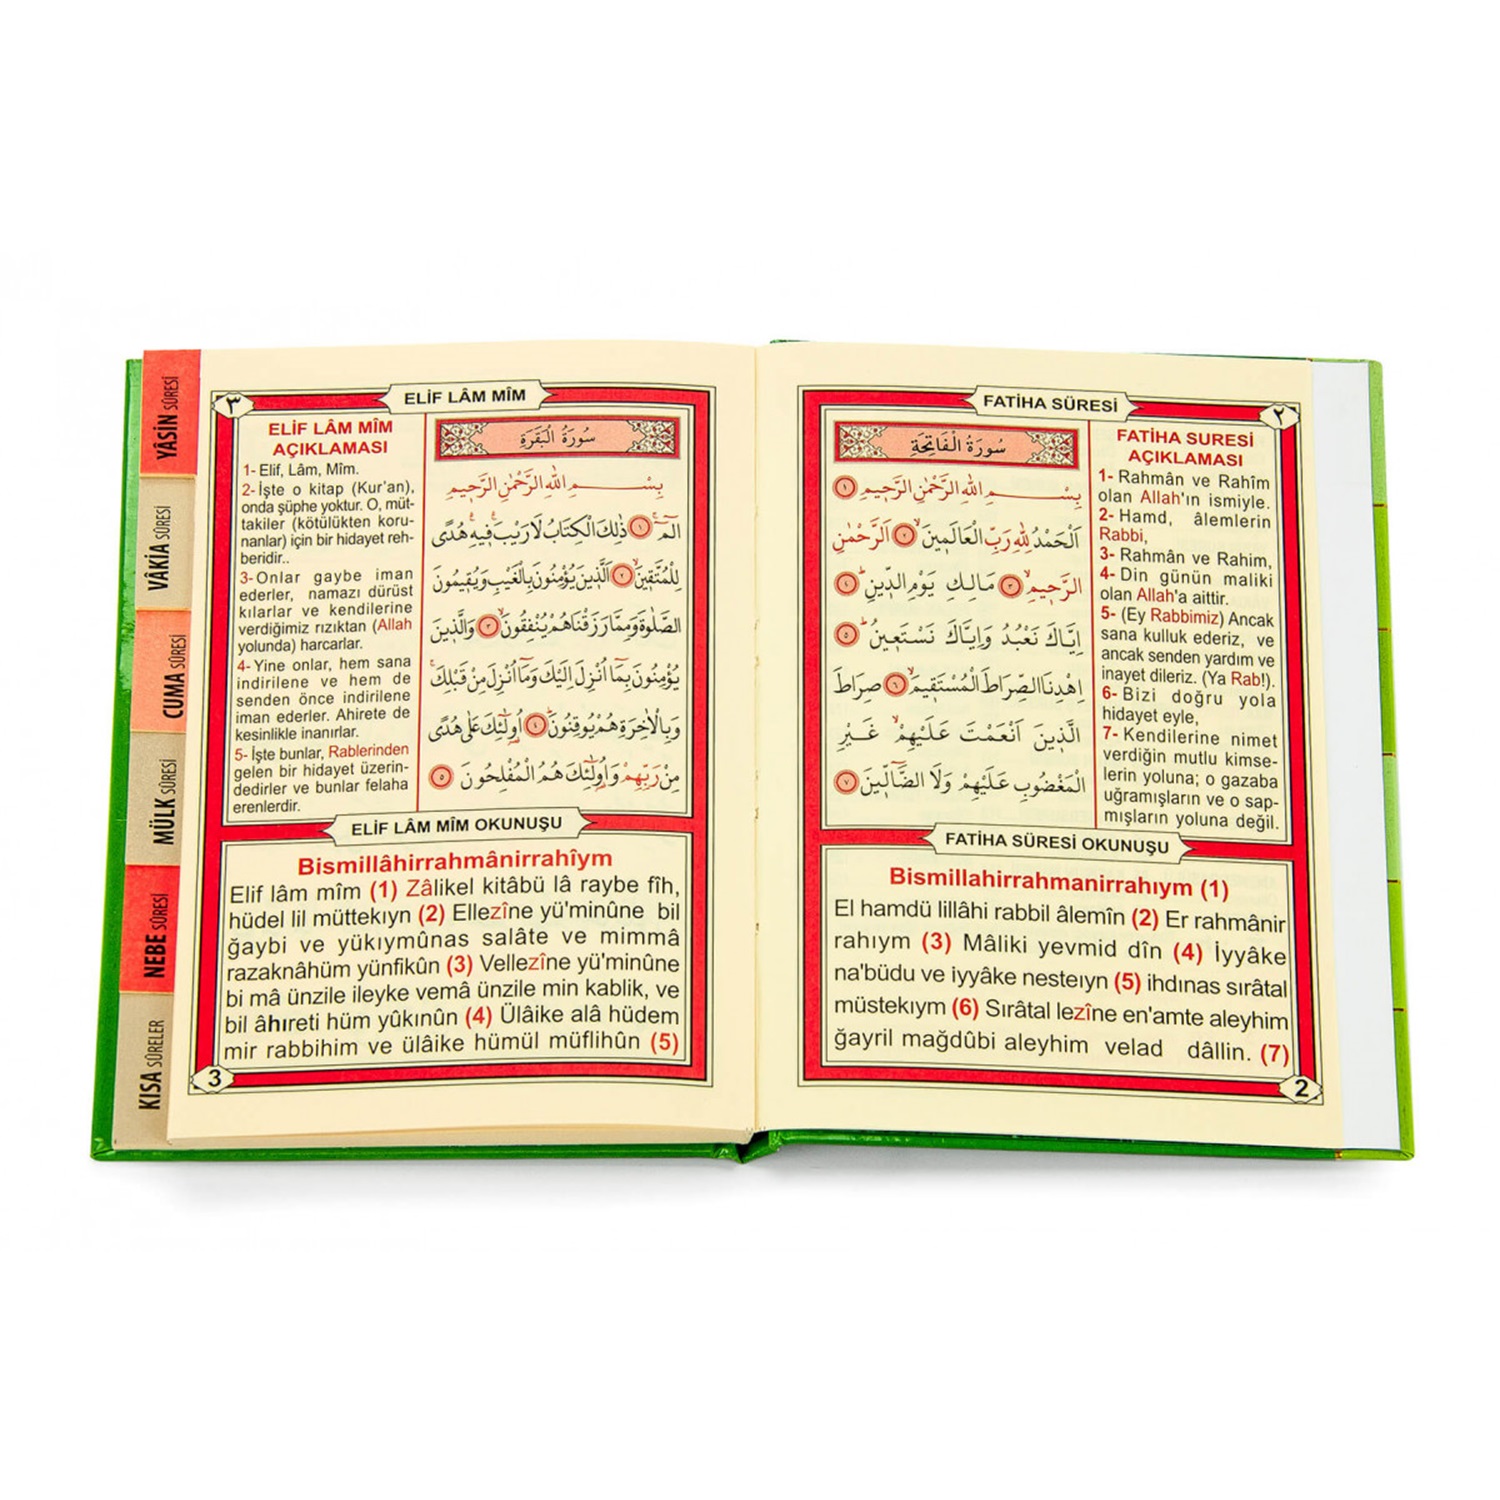 FATİHA SÛRESİ
٢
سُورَةُ الْفَاتِحَةِ
بِسْمِ اللهِ الرَّحْمٰنِ الرَّحِيمِ ١
اَلْحَمْدُ لِلّٰهِ رَبِّ الْعَالَمِينَۙ ٢ اَلرَّحْمٰنِ
الرَّحِيمِۙ ٣ مَالِكِ يَوْمِ الدِّينِۜ ٤
اِيَّاكَ نَعْبُدُ وَاِيَّاكَ نَسْتَعِينُۜ ٥
اِهْدِنَا الصِّرَاطَ الْمُسْتَقِيمَۙ ٦ صِرَاطَ
الَّذِينَ اَنْعَمْتَ عَلَيْهِمْۙ غَيْرِ
الْمَغْضُوبِ عَلَيْهِمْ وَلَا الضَّٓالِّينَ ٧
FATİHA SURESİ
AÇIKLAMASI
1- Rahmân ve Rahîm
olan Allah'ın ismiyle.
2- Hamd, âlemlerin
Rabbi,
3- Rahmân ve Rahim,
4- Din günün maliki
olan Allah'a aittir.
5- (Ey Rabbimiz) Ancak
sana kulluk ederiz, ve
ancak senden yardım ve
inayet dileriz. (Ya Rab!).
6- Bizi doğru yola
hidayet eyle,
7- Kendilerine nimet
verdiğin mutlu kimse-
lerin yoluna; o gazaba
uğramışların ve o sap-
mışların yoluna değil.
FATİHA SÛRESİ OKUNUŞU
Bismillahirrahmanirrahıym (1)
El hamdü lillâhi rabbil âlemîn (2) Er rahmânir
rahıym (3) Mâliki yevmid dîn (4) İyyâke
na'büdu ve iyyâke nesteıyn (5) ihdınas sırâtal
müstekıym (6) Sırâtal lezîne en'amte aleyhim
ğayril mağdûbi aleyhim velad dâllin. (7)
2
ELİF LÂM MÎM
٣
ELİF LÂM MÎM
AÇIKLAMASI
1- Elif, Lâm, Mîm.
2- İşte o kitap (Kur'an),
onda şüphe yoktur. O, müt-
takiler (kötülükten koru-
nanlar) için bir hidayet reh-
beridir..
3- Onlar gaybe iman
ederler, namazı dürüst
kılarlar ve kendilerine
verdiğimiz rızıktan (Allah
yolunda) harcarlar.
4- Yine onlar, hem sana
indirilene ve hem de
senden önce indirilene
iman ederler. Ahirete de
kesinlikle inanırlar.
5- İşte bunlar, Rablerinden
gelen bir hidayet üzerin-
dedirler ve bunlar felaha
erenlerdir.
سُورَةُ الْبَقَرَةِ
بِسْمِ اللهِ الرَّحْمٰنِ الرَّحِيمِ
الٓمٓۚ ١ ذٰلِكَ الْكِتَابُ لَا رَيْبَۚ فِيهِۚ هُدًى
لِلْمُتَّقِينَۙ ٢ اَلَّذِينَ يُؤْمِنُونَ بِالْغَيْبِ وَيُقِيمُونَ
الصَّلٰوةَ وَمِمَّا رَزَقْنَاهُمْ يُنْفِقُونَۙ ٣ وَالَّذِينَ
يُؤْمِنُونَ بِمَٓا اُنْزِلَ اِلَيْكَ وَمَٓا اُنْزِلَ مِنْ قَبْلِكَۚ
وَبِالْاٰخِرَةِ هُمْ يُوقِنُونَۜ ٤ اُولٰٓئِكَ عَلٰى هُدًى
مِنْ رَبِّهِمْ وَاُولٰٓئِكَ هُمُ الْمُفْلِحُونَ ٥
ELİF LÂM MÎM OKUNUŞU
Bismillâhirrahmânirrahîym
Elif lâm mîm (1) Zâlikel kitâbü lâ raybe fîh,
hüdel lil müttekıyn (2) Ellezîne yü'minûne bil
ğaybi ve yükıymûnas salâte ve mimmâ
razaknâhüm yünfikûn (3) Vellezîne yü'minûne
bi mâ ünzile ileyke vemâ ünzile min kablik, ve
bil âhıreti hüm yûkınûn (4) Ülâike alâ hüdem
mir rabbihim ve ülâike hümül müflihûn (5)
3
YÂSİN SÛRESİ
VÂKİA SÛRESİ
CUMA SÛRESİ
MÜLK SÛRESİ
NEBE SÛRESİ
KISA SÛRELER